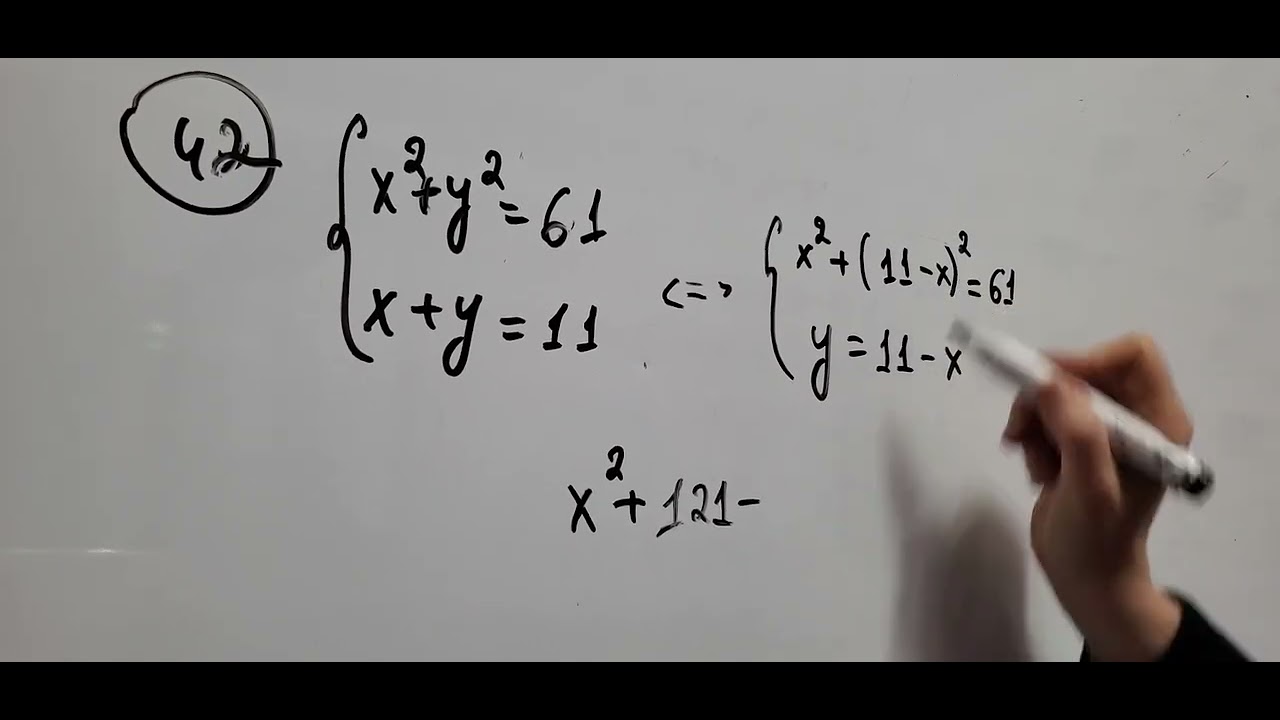 42
x²+y²=61
x+y=11
<=>
x²+(11-x)²=61
y=11-x
x²+121-